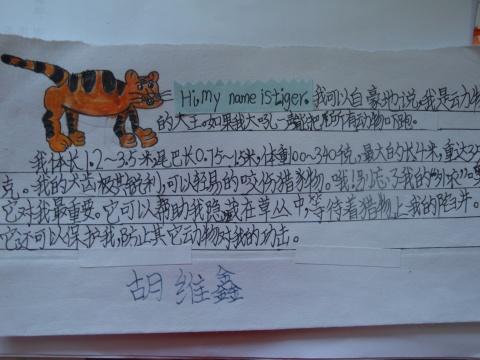 Hi, my name is tiger. 我可以自豪地说,我是动物
的大王。如果我大吼一声能把所有动物吓跑。
我体长1.2~3.5米尾巴长0.75~1.5米,体重100~340千克,最大的长4米,重达35
克。我的犬齿极其锐利,可以轻易的咬伤猎物。哦,别忘了我的
它对我最重要。它可以帮助我隐藏在草丛中,等待着猎物上我的陷井。
它还可以保护我,防止其它动物对我的攻击。
胡维鑫